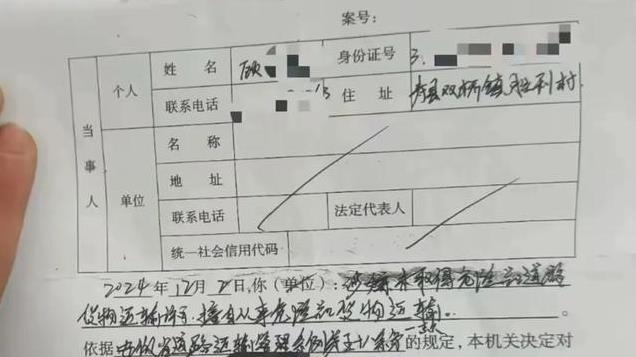 案号:
姓名 顾 身份证号 3
个人
联系电话 住址 寿县双桥镇胜利村
名称
当事人
单位 地址
联系电话 法定代表人
统一社会信用代码
2024年12月2日,你(单位):涉嫌未取得危险品道路
货物运输许可,擅自从事危险品货物运输。
依据 安徽省道路运输管理条例第 条第一款 的规定,本机关决定对